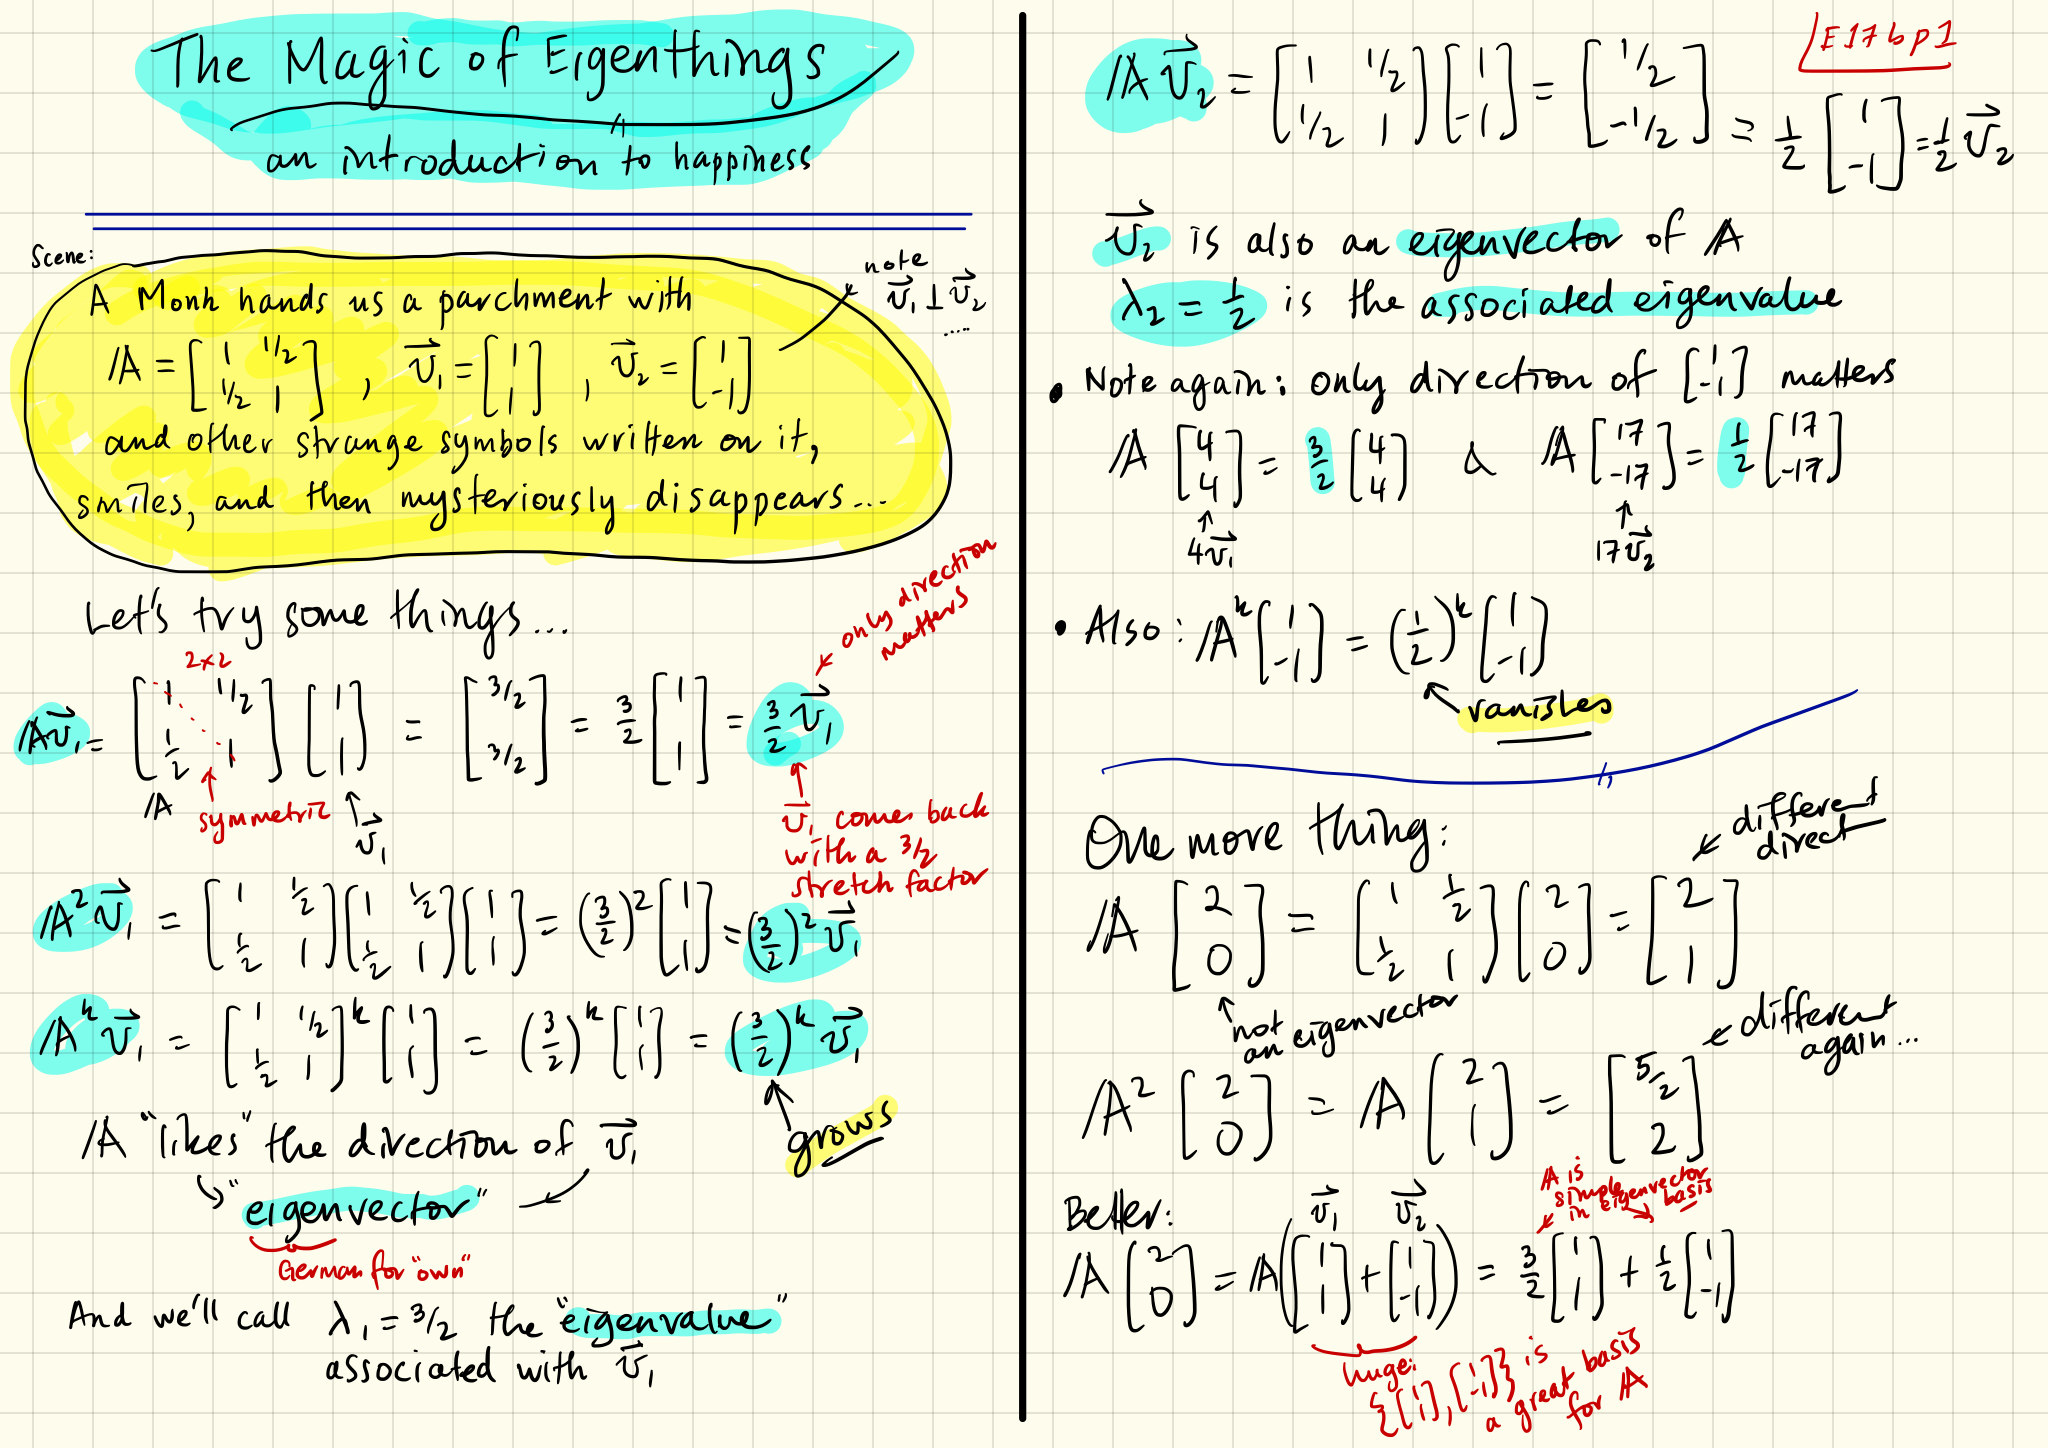 The Magic of Eigenthings
an introduction to happiness
Scene:
A Monk hands us a parchment with
note v⃗₁ ⊥ v⃗₂ ....
𝔸 = [1 1/2; 1/2 1], v⃗₁ = [1; 1], v⃗₂ = [1; -1]
and other strange symbols written on it,
smiles, and then mysteriously disappears...
Let's try some things...
only direction
matters
2x2
𝔸v⃗₁ = [1 1/2; 1/2 1] [1; 1] = [3/2; 3/2] = 3/2 [1; 1] = 3/2 v⃗₁
𝔸
symmetric
v⃗₁
v⃗₁ comes back
with a 3/2
stretch factor
𝔸² v⃗₁ = [1 1/2; 1/2 1] [1 1/2; 1/2 1] [1; 1] = (3/2)² [1; 1] = (3/2)² v⃗₁
𝔸ᵏ v⃗₁ = [1 1/2; 1/2 1]ᵏ [1; 1] = (3/2)ᵏ [1; 1] = (3/2)ᵏ v⃗₁
grows
𝔸 "likes" the direction of v⃗₁
"eigenvector"
German for "own"
And we'll call λ₁ = 3/2 the "eigenvalue"
associated with v⃗₁
E17bp1
𝔸v⃗₂ = [1 1/2; 1/2 1] [1; -1] = [1/2; -1/2] = 1/2 [1; -1] = 1/2 v⃗₂
v⃗₂ is also an eigenvector of 𝔸
λ₂ = 1/2 is the associated eigenvalue
• Note again: only direction of [1; -1] matters
𝔸 [4; 4] = 3/2 [4; 4] & 𝔸 [17; -17] = 1/2 [17; -17]
4v⃗₁
17v⃗₂
• Also: 𝔸ᵏ [1; -1] = (1/2)ᵏ [1; -1]
vanishes
One more thing:
different
direct
𝔸 [2; 0] = [1 1/2; 1/2 1] [2; 0] = [2; 1]
not
an eigenvector
different
again...
𝔸² [2; 0] = 𝔸 [2; 1] = [5/2; 2]
𝔸 is
simple
in eigenvector
basis
Better:
v⃗₁ v⃗₂
𝔸 [2; 0] = 𝔸([1; 1] + [1; -1]) = 3/2 [1; 1] + 1/2 [1; -1]
huge:
{[1; 1], [1; -1]} is
a great basis
for 𝔸